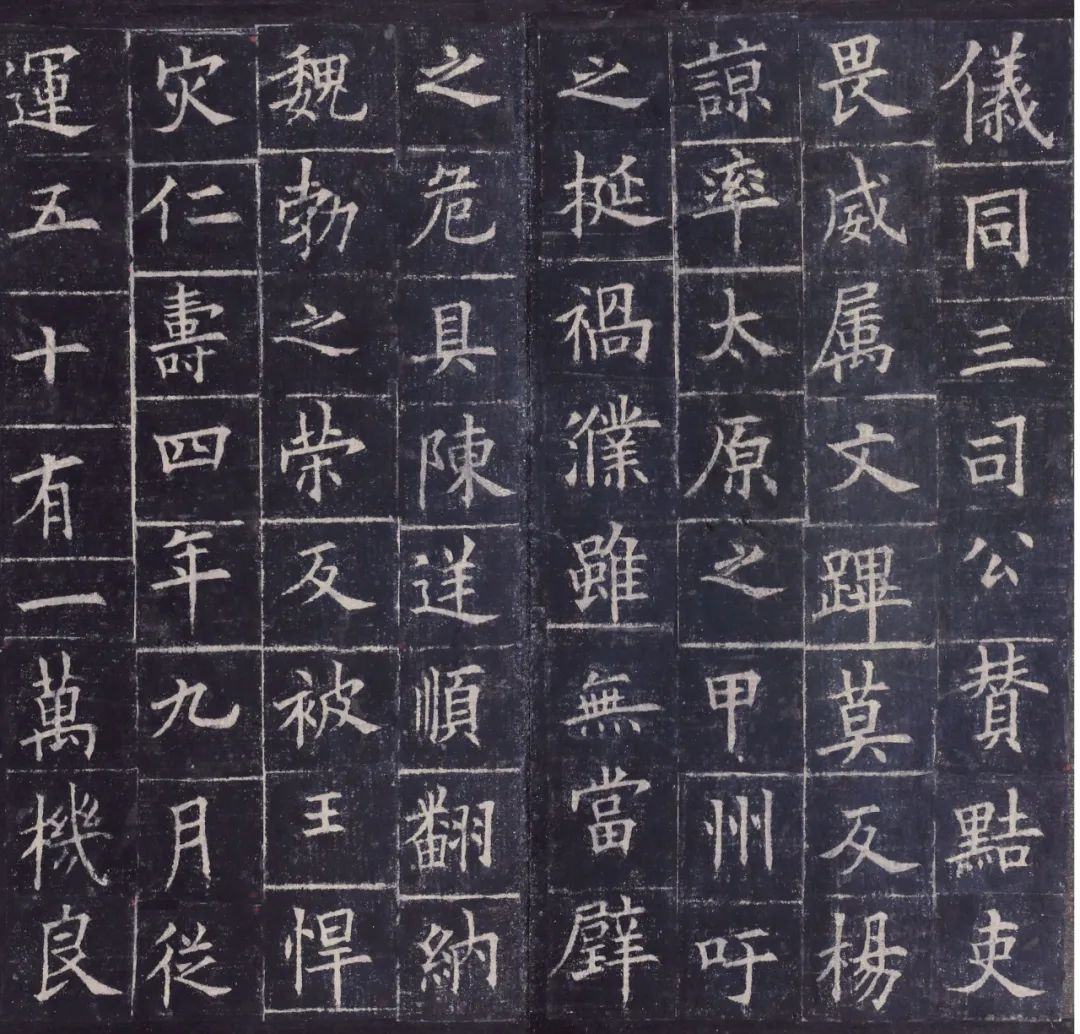 儀同三司公賛黠吏
畏威属文蹕莫反楊
諒率太原之甲州吁
之挻禍濮雖無當璧
之危具陳逆順翻納
魏勃之荣反被王悍
灾仁壽四年九月従
運五十有一萬機良